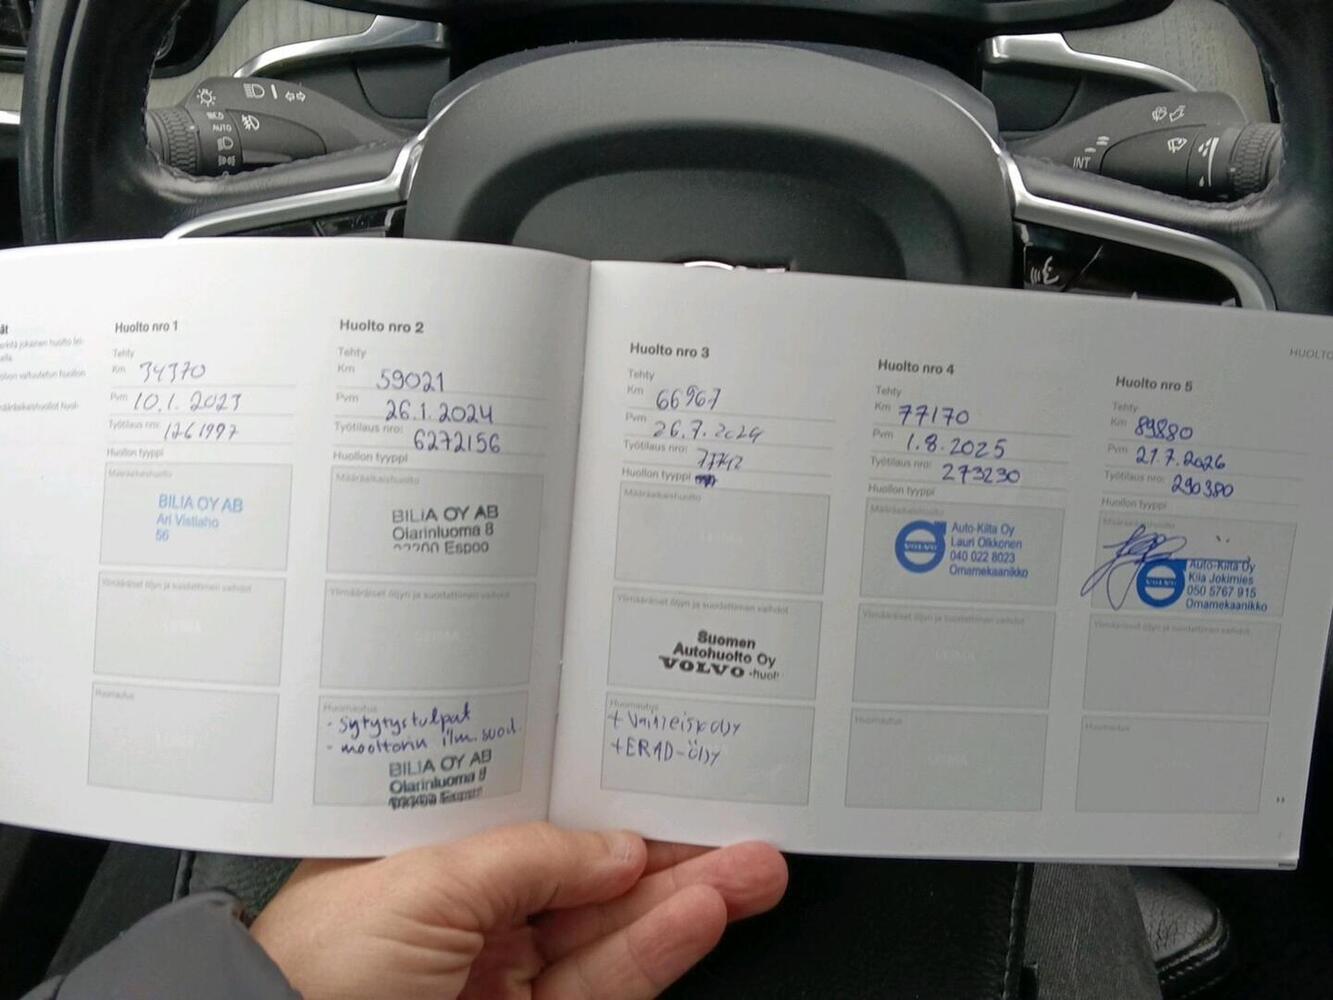 Huolto nro 1
Tehty
Km 34370
Pvm 10.1.2023
Työtilaus nro: 1261997
Huollon tyyppi
Määräaikaishuolto
BILIA OY AB
Ari Vistiaho
56
Ylimääräiset öljyn ja suodattimen vaihdot
Huomautus
Huolto nro 2
Tehty
Km 59021
Pvm 26.1.2024
Työtilaus nro: 6272156
Huollon tyyppi
Määräaikaishuolto
BILIA OY AB
Olarinluoma 8
02200 Espoo
Ylimääräiset öljyn ja suodattimen vaihdot
Huomautus
- sytytystulpat
- mooltorin ilm. suod.
BILIA OY AB
Olarinluoma 8
Huolto nro 3
Tehty
Km 66967
Pvm 26.7.2024
Työtilaus nro: 77742
Huollon tyyppi
Määräaikaishuolto
Ylimääräiset öljyn ja suodattimen vaihdot
Suomen
Autohuolto Oy
VOLVO -huol
Huomautus
+ Vaihteistoöljy
+ ERAD-öljy
HUOLTO
Huolto nro 4
Tehty
Km 77170
Pvm 1.8.2025
Työtilaus nro: 273230
Huollon tyyppi
Määräaikaishuolto
VOLVO
Auto-Kilta Oy
Lauri Olkkonen
040 022 8023
Omamekaanikko
Ylimääräiset öljyn ja suodattimen vaihdot
Huomautus
Huolto nro 5
Tehty
Km 89880
Pvm 21.7.2026
Työtilaus nro: 290380
Huollon tyyppi
Määräaikaishuolto
VOLVO
Auto-Kilta Oy
Kiia Jokimies
050 5767 915
Omamekaanikko
Ylimääräiset öljyn ja suodattimen vaihdot
Huomautus
AUTO
INT